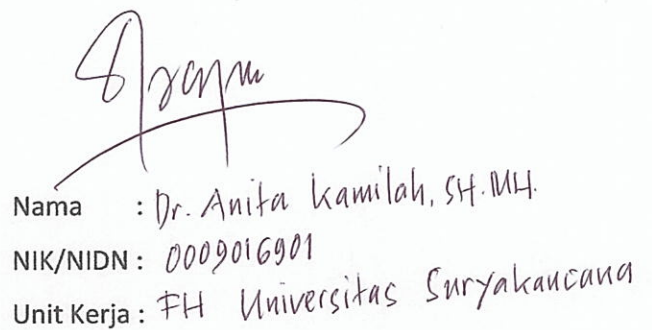 Nama : Dr. Anita Kamilah, SH.MH.
NIK/NIDN : 0009016901
Unit Kerja : FH Universitas Suryakancana